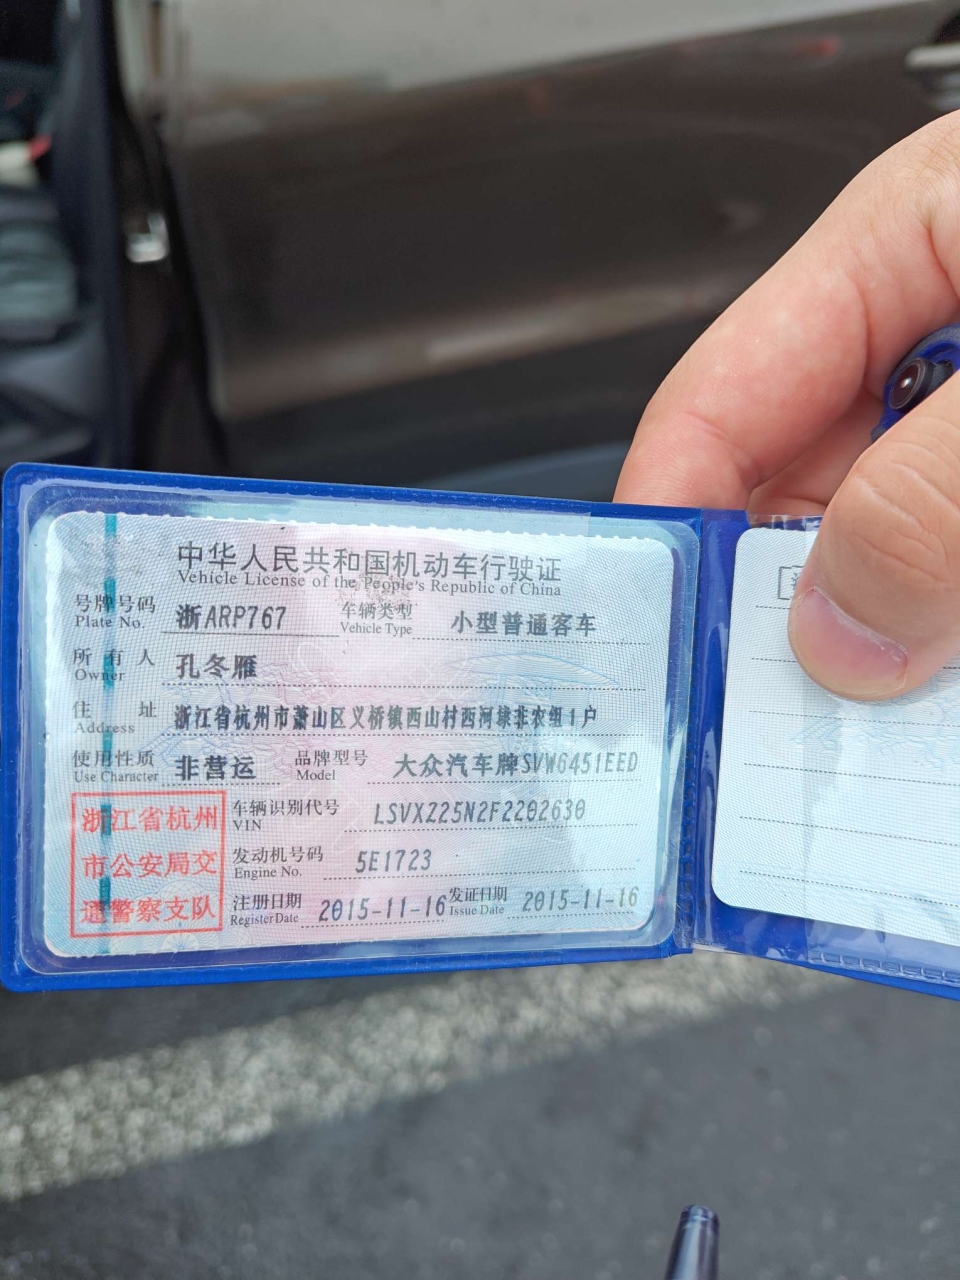 中华人民共和国机动车行驶证
Vehicle License of the People's Republic of China
号牌号码 浙ARP767 车辆类型 小型普通客车
Plate No. Vehicle Type
所有人 孔冬雁
Owner
住址 浙江省杭州市萧山区义桥镇西山村西河绿非农组1户
Address
使用性质 非营运 品牌型号 大众汽车牌SVW6451EED
Use Character Model
车辆识别代号 LSVXZ25N2F2202630
VIN
发动机号码 5E1723
Engine No.
注册日期 2015-11-16 发证日期 2015-11-16
Register Date Issue Date
浙江省杭州
市公安局交
通警察支队